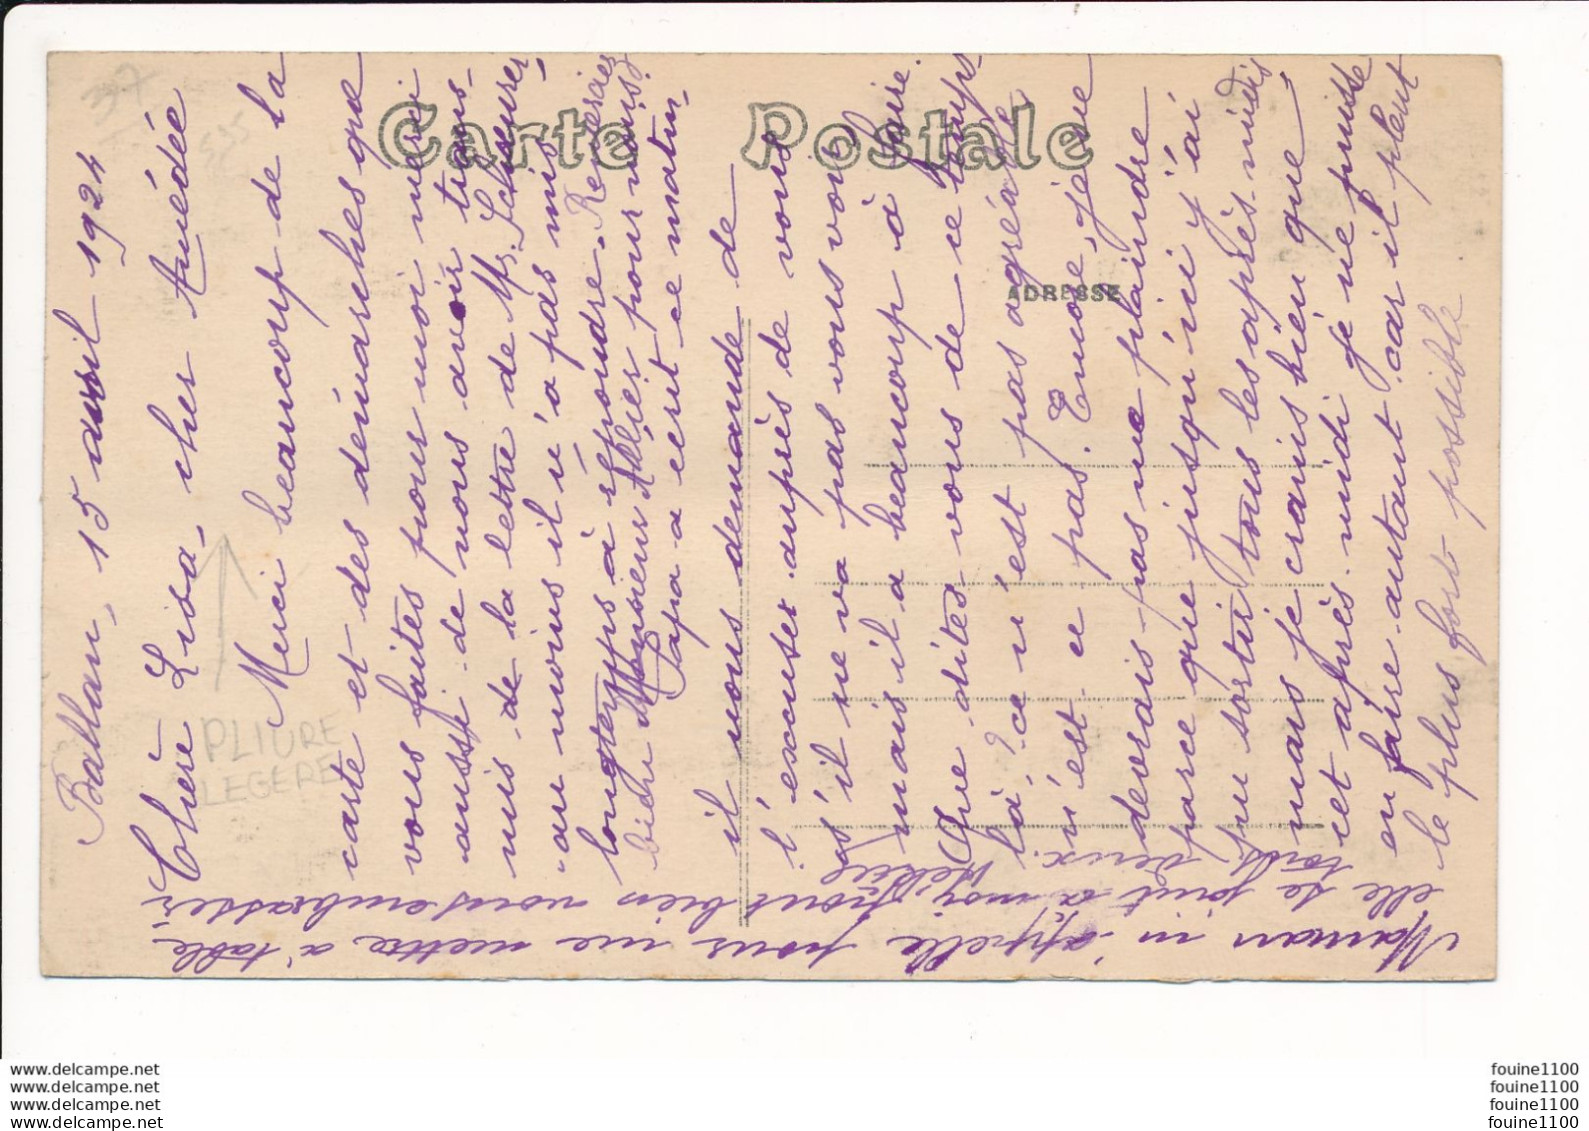 37
595
Carte Postale
ADRESSE
Ballan, 15 avril 1924
Chère Lisa, cher Amédée
Merci beaucoup de la
carte et des démarches que
vous faites pour moi merci
aussi de nous avoir trans-
mis de la lettre de Mr.
au moins il n'a pas mis
longtemps à répondre. Remerciez
bien Monsieur pour nous.
Papa a écrit ce matin
il vous demande de
l'excuser auprès de vous
s'il ne va pas vous voir
mais il a beaucoup à faire.
Que dites vous de ce temps
là? ce n'est pas agréable
n'est ce pas. Encore, je ne
devrais pas me plaindre
parce que jusqu'ici j'ai
pu sortir tous les après-midis
mais je crains bien que
cet après-midi je ne puisse
en faire autant car il pleut
le plus fort possible.
Maman m'appelle pour me mettre à table
elle se joint à moi pour bien vous embrasser
tous deux.
PLIURE
LEGERE
www.delcampe.net
www.delcampe.net
www.delcampe.net
www.delcampe.net
fouine1100
fouine1100
fouine1100
fouine1100